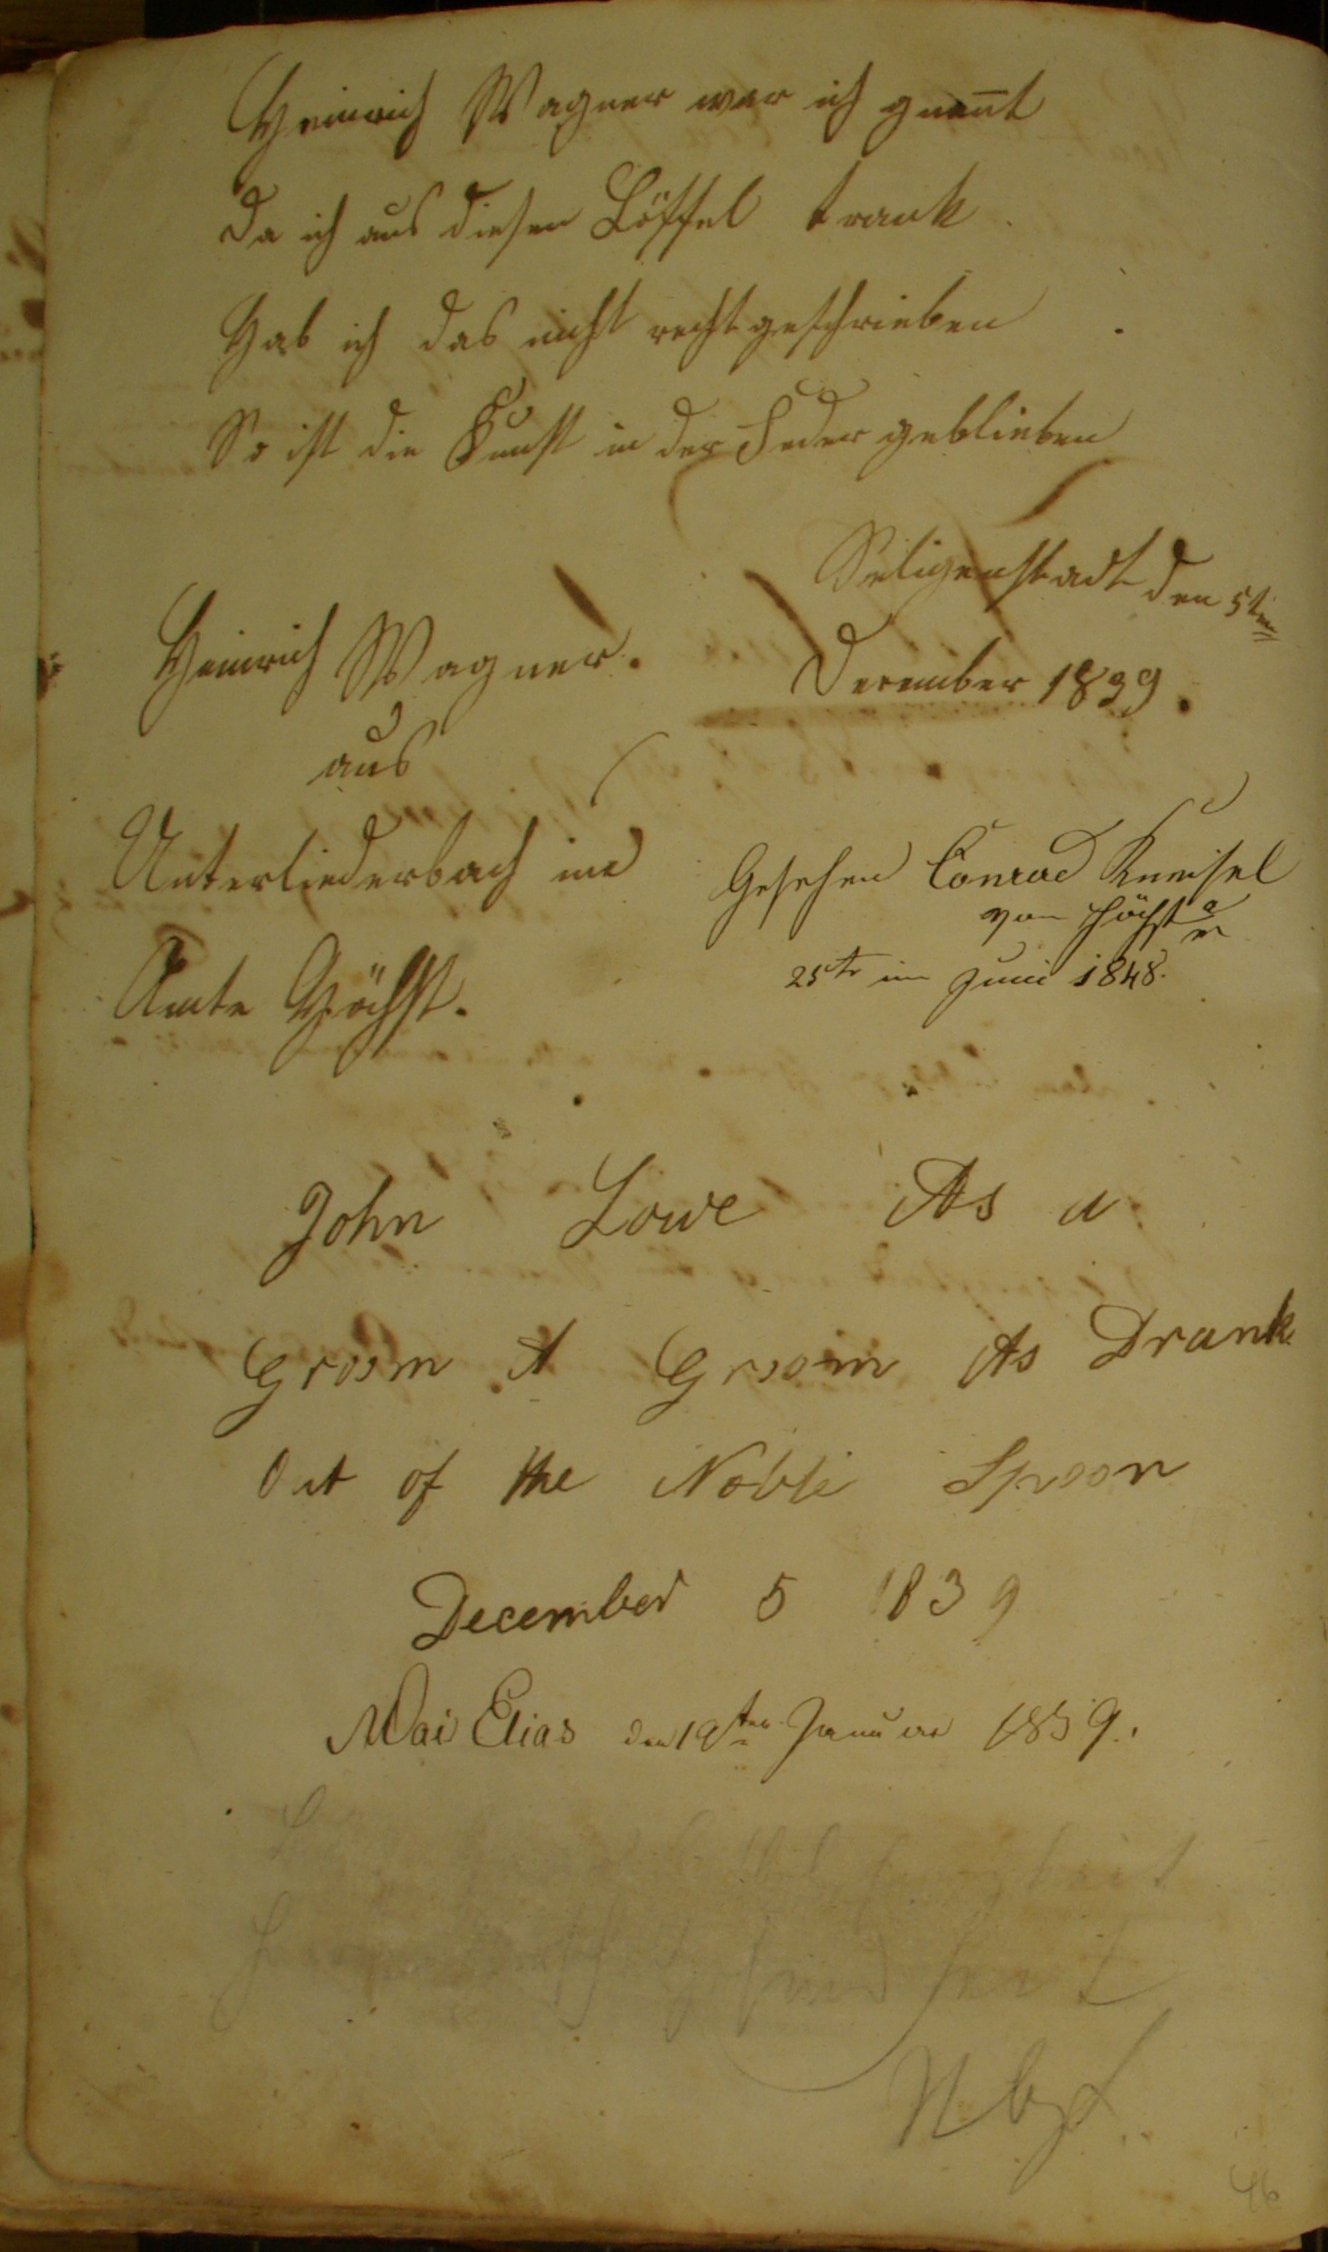 Heinrich Wagner war ich gnen̄t
Da ich aus diesen Löffel trank.
Hab ich das nicht recht geschrieben
So ist die Kunst in der Feder geblieben
Seligenstadt den 5ten
December 1839.
Heinrich Wagner.
aus
Unterliederbach im
Amte Höchst.
Gesehen Conrad Kneisel
von Höchst a/m
25te im Juni 1848.
John Lowe As a
Groom A Groom As Drank
Out of the Noble Spoon
December 5 1839
Mai Elias den 19ten Januar 1859.
46